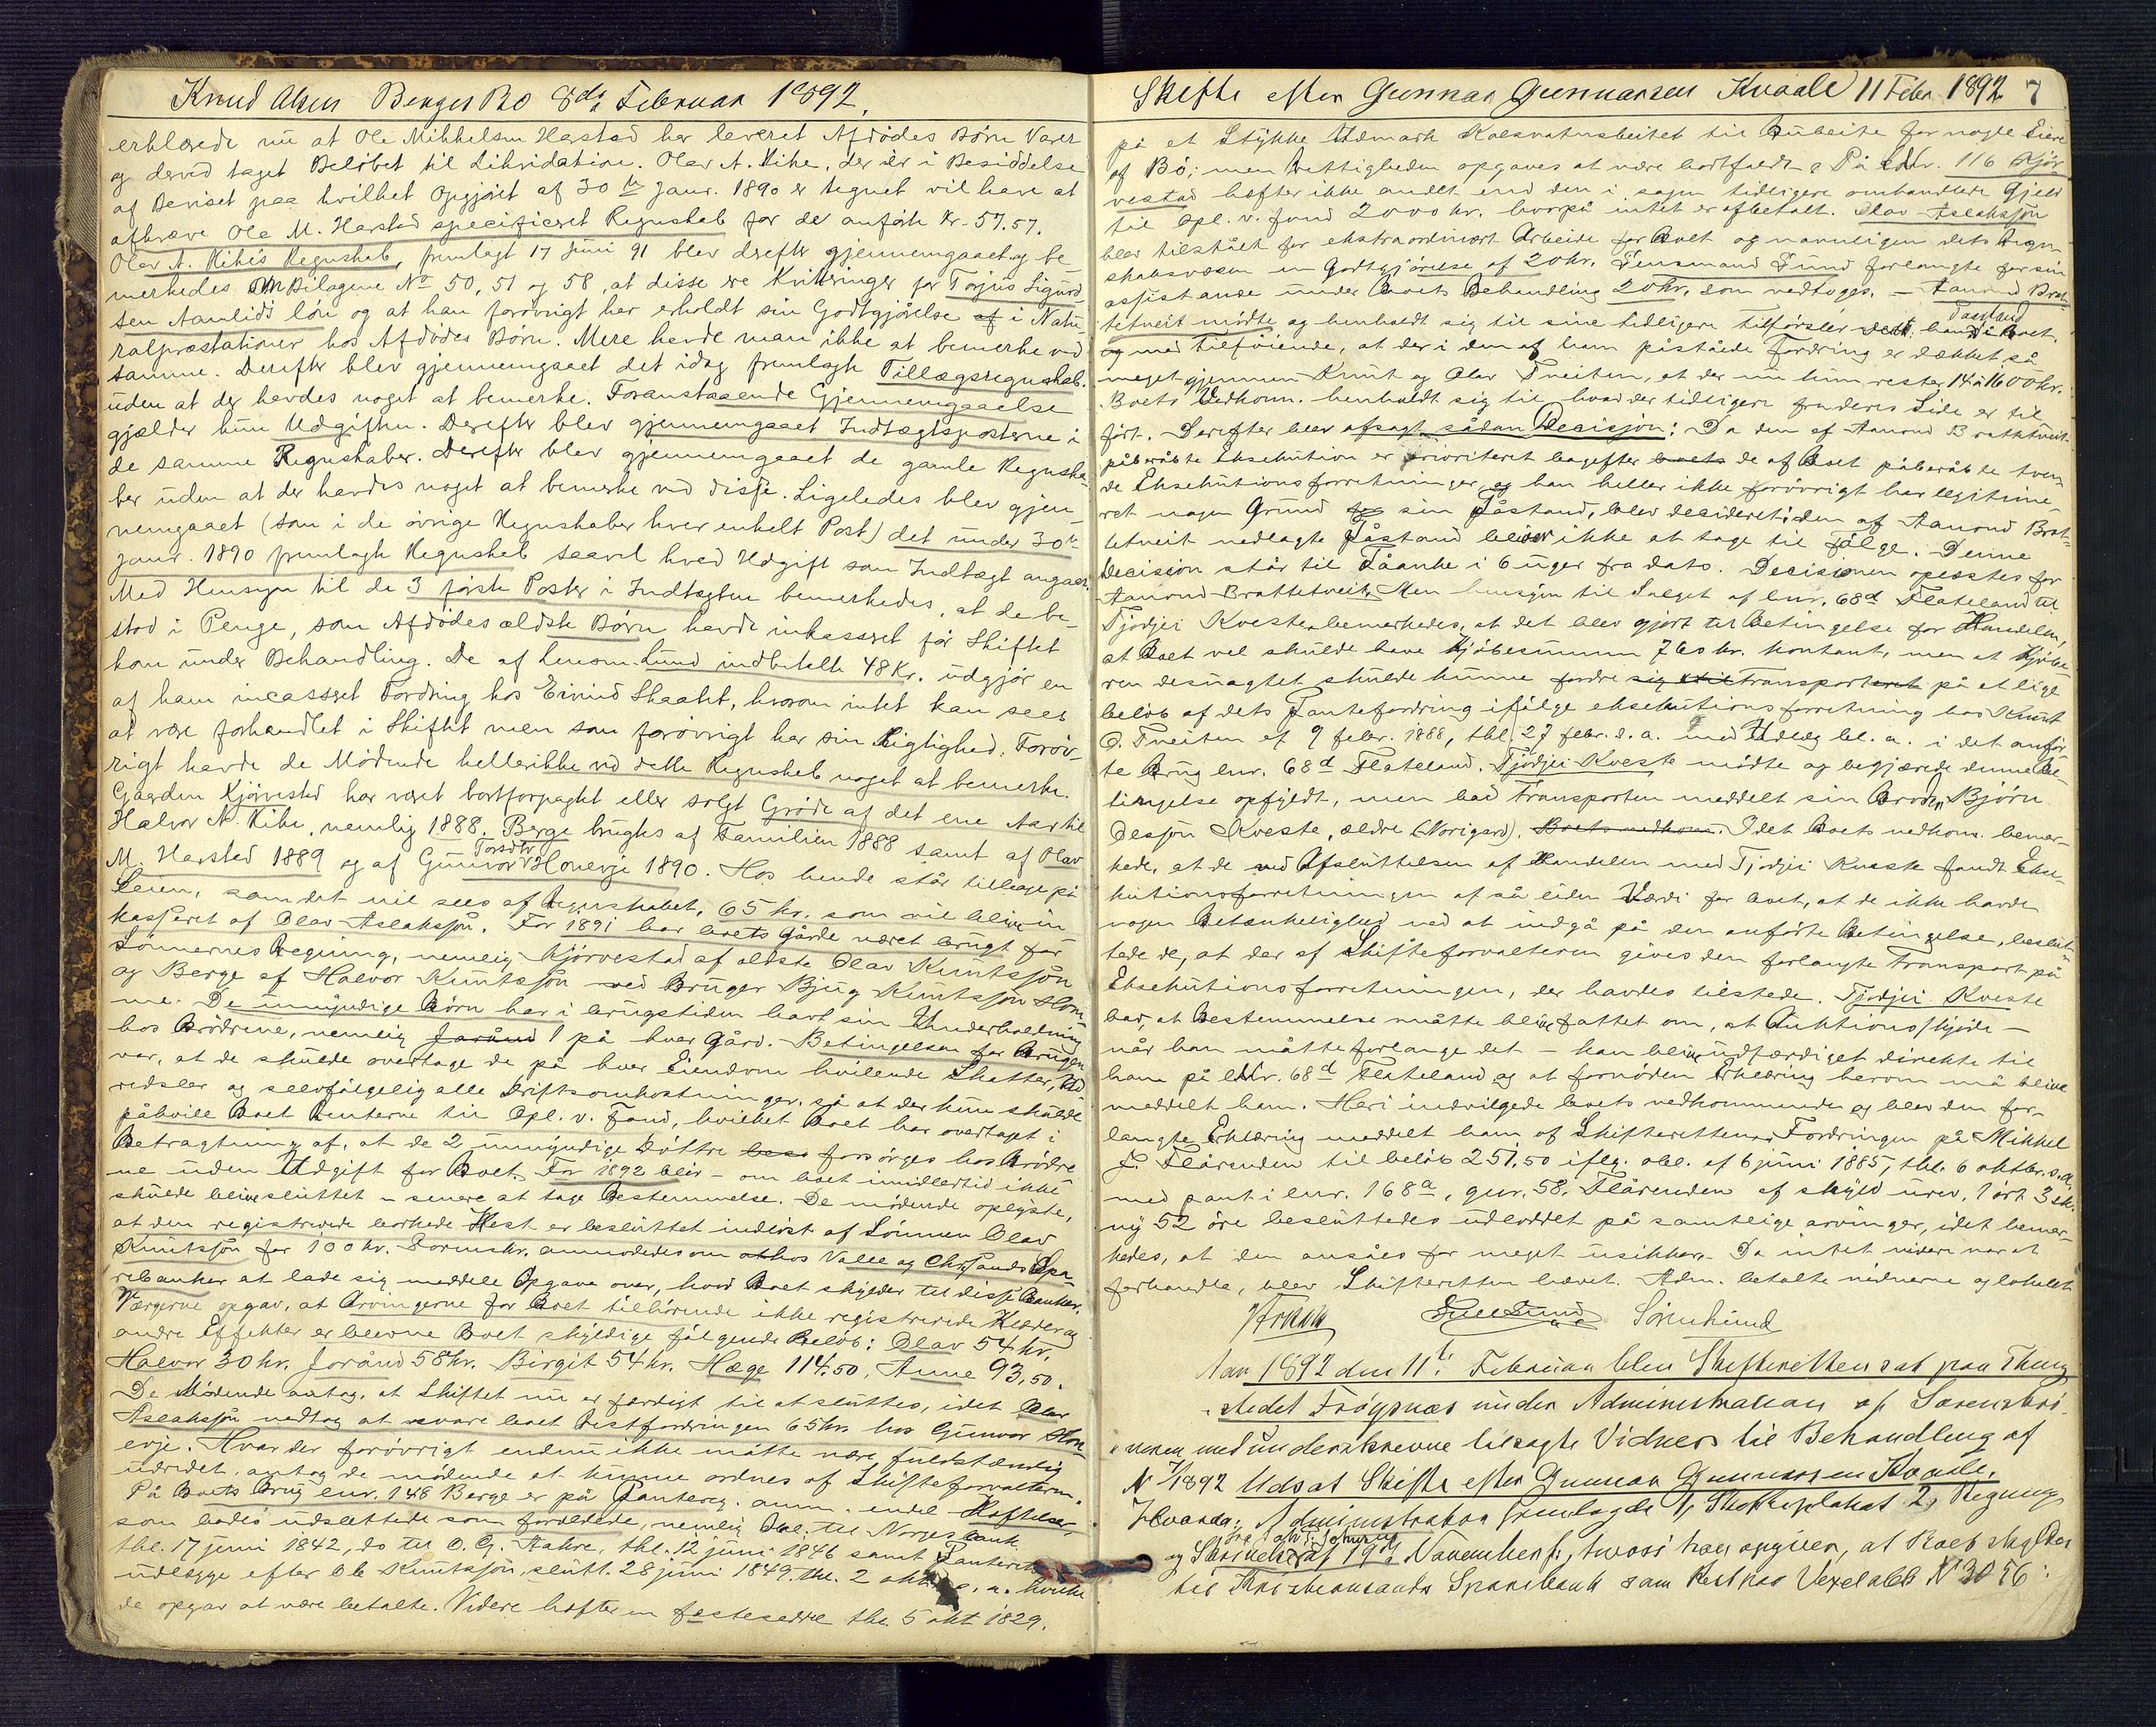 Knud Olsen Berges Bo 8de Februar 1892.
erklærede nu at Ole Mikkelsen Harstad har leveret Afdødes Børn Varer
og derved taget Beløbet til Likvidation. Olav A. Vike, der er i Besiddelse
af Beviset paa hvilket Opgjøret af 30te Janr. 1890 er tegnet vil have at
afkræve Ole M. Harstad specificeret Regnskab for de anførte Kr. 57.57.
Olav A. Vikes Regnskab, fremlagt 17 Juni 91 blev derefter gjennemgaaet og be
merkedes Bilagene No 50, 51 og 58, at disse ere Kvitteringer for Torjus Sigurd
sen Aamlids løn og at han forøvrigt har erholdt sin Godtgjørelse af i Natu
ralpræstationer hos Afdødes Børn. Mere havde man ikke at bemerke ved
samme. Derefter blev gjennemgaaet det idag fremlagte Tillægsregnskab.
uden at der havdes noget at bemerke. Foranstaaende Gjennemgaaelse
gjælder kun Udgiften. Derefter blev gjennemgaaet Indtægtsposterne i
de samme Regnskaber. Derefter blev gjennemgaaet de gamle Regnska-
ber uden at der havdes noget at bemerke ved disse. Ligeledes blev gjen-
nemgaaet (som i de øvrige Regnskaber hver enkelt Post) det under 30te
Janr. 1890 fremlagte Regnskab saavel hvad Udgift som Indtægt angaar.
Med Hensyn til de 3 første Poster i Indtægten bemerkedes, at de be-
stod i Penge, som Afdødes ældste Børn havde inkasseret før Skiftet
kom under Behandling. De af Lensm. Lund indbetalte 48 Kr. udgjør en
af ham incasseret Fordring hos Eivind Skaaht, hvorom intet kan sees
at være forhandlet i Skiftet men som forøvrigt har sin Rigtighed. Forøv-
rigt havde de Mødende hellerikke ved dette Regnskab noget at bemerke.
Gaarden Kjørvestad har været bortforpagtet eller solgt Grøde af det ene Aar til
Halvor N. Vike, nemlig 1888. Berge brugtes af Familien 1888 samt af Olav
M. Harstad 1889 og af Gunvor Torsdtr Honevje 1890. Hos hende står tilbage på
Leien, som det vil sees af Regnskabet, 65 kr. som vil blive in
kasseret af Olav Aslaksson. For 1891 har boets Gårde været brugt for
Sønnernes Regning, nemlig Kjørvestad af ældste Olav Knutsson
og Berge af Halvor Knutsson ved Bruger Bjug Knutsson Hom-
me. De umyndige Børn har i brugstiden havt sin Underholdning
hos Brødrene, nemlig Jorånd 1 på hver Gård. Betingelsen for Brugen
var, at de skulde overtage de på hver Eiendom hvilende Skatter, Ud
redsler og selvfølgelig alle Driftsomkostninger, så at der kun skulde
påhvile Boet Renterne til Opl. v. Fond, hvilket Boet har overtaget i
Betragtning af, at de 2 umyndige Døttre forsørges hos Brødre
ne uden Udgift for Boet. For 1892 blir – om boet imidlertid ikke
skulde blive sluttet – senere at tage Bestemmelse. De mødende oplyste,
at den registrerede borkede Hest er besluttet indløst af Sønnen Olav
Knutsson for 100 kr. Formskr. anmodedes om at hos Valle og Chr.sands Spa-
rebanker at lade sig meddele Opgave over, hvad Boet skylder til disse Banker.
Værgerne opgav, at Arvingerne for Boet tilhørende ikke registrerede Klæder og
andre Effekter er blevne Boet skyldige følgende Beløb: Olav 54 kr,
Halvor 30 kr. Jorånd 58 kr. Birgit 54 kr. Hæge 114,50, Anne 93,50.
De Mødende antog, at Skiftet nu er færdigt til at sluttes, idet Olav
Aslaksson vedtog at svare boet Restfordringen 65 kr. hos Gunvor Hon-
evje. Hvad der forøvrigt endnu ikke måtte være fuldstændig
udredet, antog de mødende at kunne ordnes af Skifteforvalteren.
På Boets Brug lnr. 148 Berge er på Pantereg. anm. endel Heftelser,
som bades udslettede som forældede, nemlig Obl. til Norges Bank
thl. 17 juni 1842, do til O. G. Aakre, thl. 12 juni 1846 samt Panteret
udlægge efter Ole Knutsson, slutt. 28 juni 1849, thl. 2 okt. s. a. hvilke
de opgav at være betalte. Videre hefter en festeseddel thl. 5 okt 1829.
Skifte efter Gunnar Gunnarsen Kvaale 11 Febr. 1892. 7
på et Stykke Udmark Kolsvatnsbeitet til Bubeite for nogle Eiere
af Bø; men Rettigheden opgaves at være bortfaldt. På Lnr. 116 Kjør
vestad hefter ikke andet end den i sagen tidligere omhandlede Gjeld
til Opl. v. fond 2000 kr. hvorpå intet er afbetalt. Olav Aslaksson
blev tilstået for ekstraordinært Arbeide for Boet og navnligen dets Regn-
skabsvæsen en Godtgjørelse af 20 kr. Lensmand Lund forlangte for sin
assistanse under Boets Behandling 20 kr. som vedtoges. – Aanond Brat-
tetveit mødte og henholdt sig til sine tidligere tilførsler Påstand i Boet.
og med tilføiende, at der i den af ham påståede Fordring er dækket så
meget gjennem Knut og Olav Tveiten, at der nu kun rester 14 à 1600 kr.
Boets Vedkomm. henholdt sig til hvad der tidligere fra deres Side er til
ført. Derefter blev afsagt sådan Decisjon: Da den af Aanond Brattetveit
påberåbte Eksekution er prioriteret bagefter boets de af Boet påberåbte tven
de Eksekutionsforretninger og han heller ikke forøvrigt har legitime
ret nogen Grund for sin Påstand, blev decideret: den af Aanond Brat-
tetveit nedlagte Påstand bliver ikke at tage til følge. Denne
Decision står til Påanke i 6 uger fra dato. Decisionen oplæstes for
Aanond Brattetveit. Men hensyn til Salget af lnr. 68d Flateland til
Tjodgei Kveste bemerkedes, at det blev gjort til Betingelse for Handelen,
at Boet vel skulde have Kjøbesummen 760 kr. kontant, men at Kjøbe
ren desuagtet skulde kunne fordre sig transport på et lige
beløb af dets Pantefordring ifølge eksekutionsforretning hos Knut
O. Tveiten af 9 febr. 1888, thl. 27 febr. s. a. med Udlæg bl. a. i det anfør
te Brug lnr. 68d Flateland. Tjodgei Kveste mødte og begjærede denne Be-
tingelse opfyldt, men bad transporten meddelt sin Broder Bjørn
Olsson Kveste, ældre (Norigard). Boets vedkom. Idet Boets vedkom. bemer-
kede, at de ved Afsluttelsen af Handelen med Tjodgei Kveste fandt Ekse-
kutionsforretningen af så liden Værdi for boet, at de ikke havde
nogen Betænkelighed ved at indgå på den anførte Betingelse, beslut-
tede de, at der af Skifteforvalteren gives den forlangte Transport på
Eksekutionsforretningen, der havdes tilstede. Tjodgei Kveste
bad, at Bestemmelse måtte blive fattet om, at Auktionsskjøde –
når han måtte forlange det – kan blive udfærdiget direkte til
ham på lnr. 68d Flateland og at fornøden Erklæring herom må blive
meddelt ham. Heri indvilgede boets vedkommende og blev den for-
langte Erklæring meddelt ham af Skifteretten. Fordringen på Mikkel
J. Flårenden til beløb 251,50 iflg. obl. af 6 juni 1885, thl. 6 oktbr. s. a.
med pant i lnr. 168a, gnr. 58. Flårenden af skyld urev. 1 ort 3 sk.
ny 52 øre besluttedes udloddet på samtlige arvinger, idet bemer-
kedes, at den ansåes for meget usikker. Da intet videre var at
forhandle, blev Skifteretten hævet. Adm. betalte vidnerne og lokalet
Aar 1892 den 11te Februar blev Skifteretten sat paa Thing
stedet Frøysnæs under Administration af Sorenskri
veren med underskrevne tilsagte Vidner til Behandling af
N 7/1892 Udsat Skifte efter Gunnar Gunnarsen Kvaale.
Hvorda: Administrator fremlagde 1, Skifteplakat 2, Regning
og Skrivelse af 19de November f., hvori han opgiver, at Boet skylder
til Kristiansands Sparebank som Rest paa Vexelobl. No 3056: